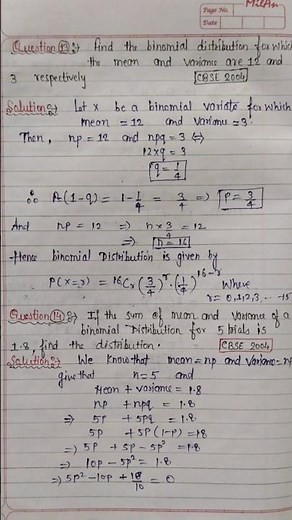 Milan
Page No.
Date
Question 13 :- find the binomial distribution for which
the mean and variance are 12 and
3 respectively [CBSE 2004]
Solution :- Let x be a binomial variate for which
mean = 12 and variance = 3.
Then, np = 12 and npq = 3 ⇔
12×q = 3
q = 1/4
∴ P=(1-q) = 1-1/4 = 3/4 => p = 3/4
And np = 12 => n×3/4 = 12
=> n = 16
Hence binomial Distribution is given by
P(X=r) = 16Cr (3/4)^r . (1/4)^16-r where
r = 0,1,2,3,... 15
Question 14 :- If the sum of mean and variance of a
binomial Distribution for 5 trials is
1.8, find the distribution. [CBSE 2004]
Solution :- We know that mean = np and variance = n
give that n = 5 and
Mean + variance = 1.8
np + npq = 1.8
=> 5p + 5pq = 1.8
5p + 5p(1-p) = 1.8
=> 5p + 5p - 5p² = 1.8
=> 10p - 5p² = 1.8
=> 5p² - 10p + 18/10 = 0